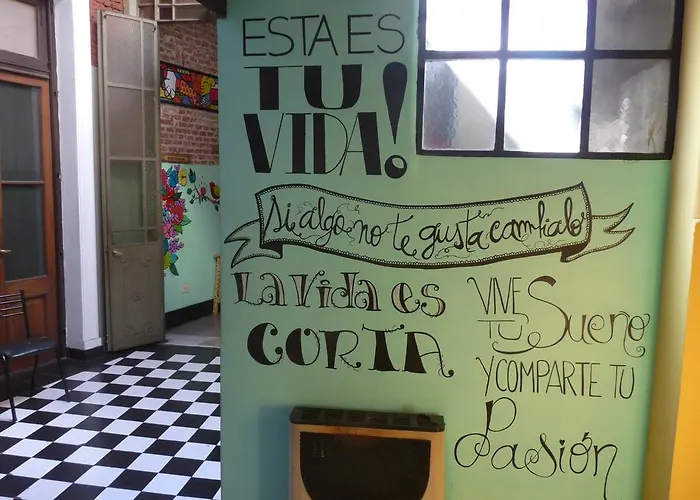 ESTA ES
TU
VIDA!
Si algo no te gusta cambialo
La Vida es
CORTA
VIVE
TU Sueño
Y COMPARTE TU
Pasión